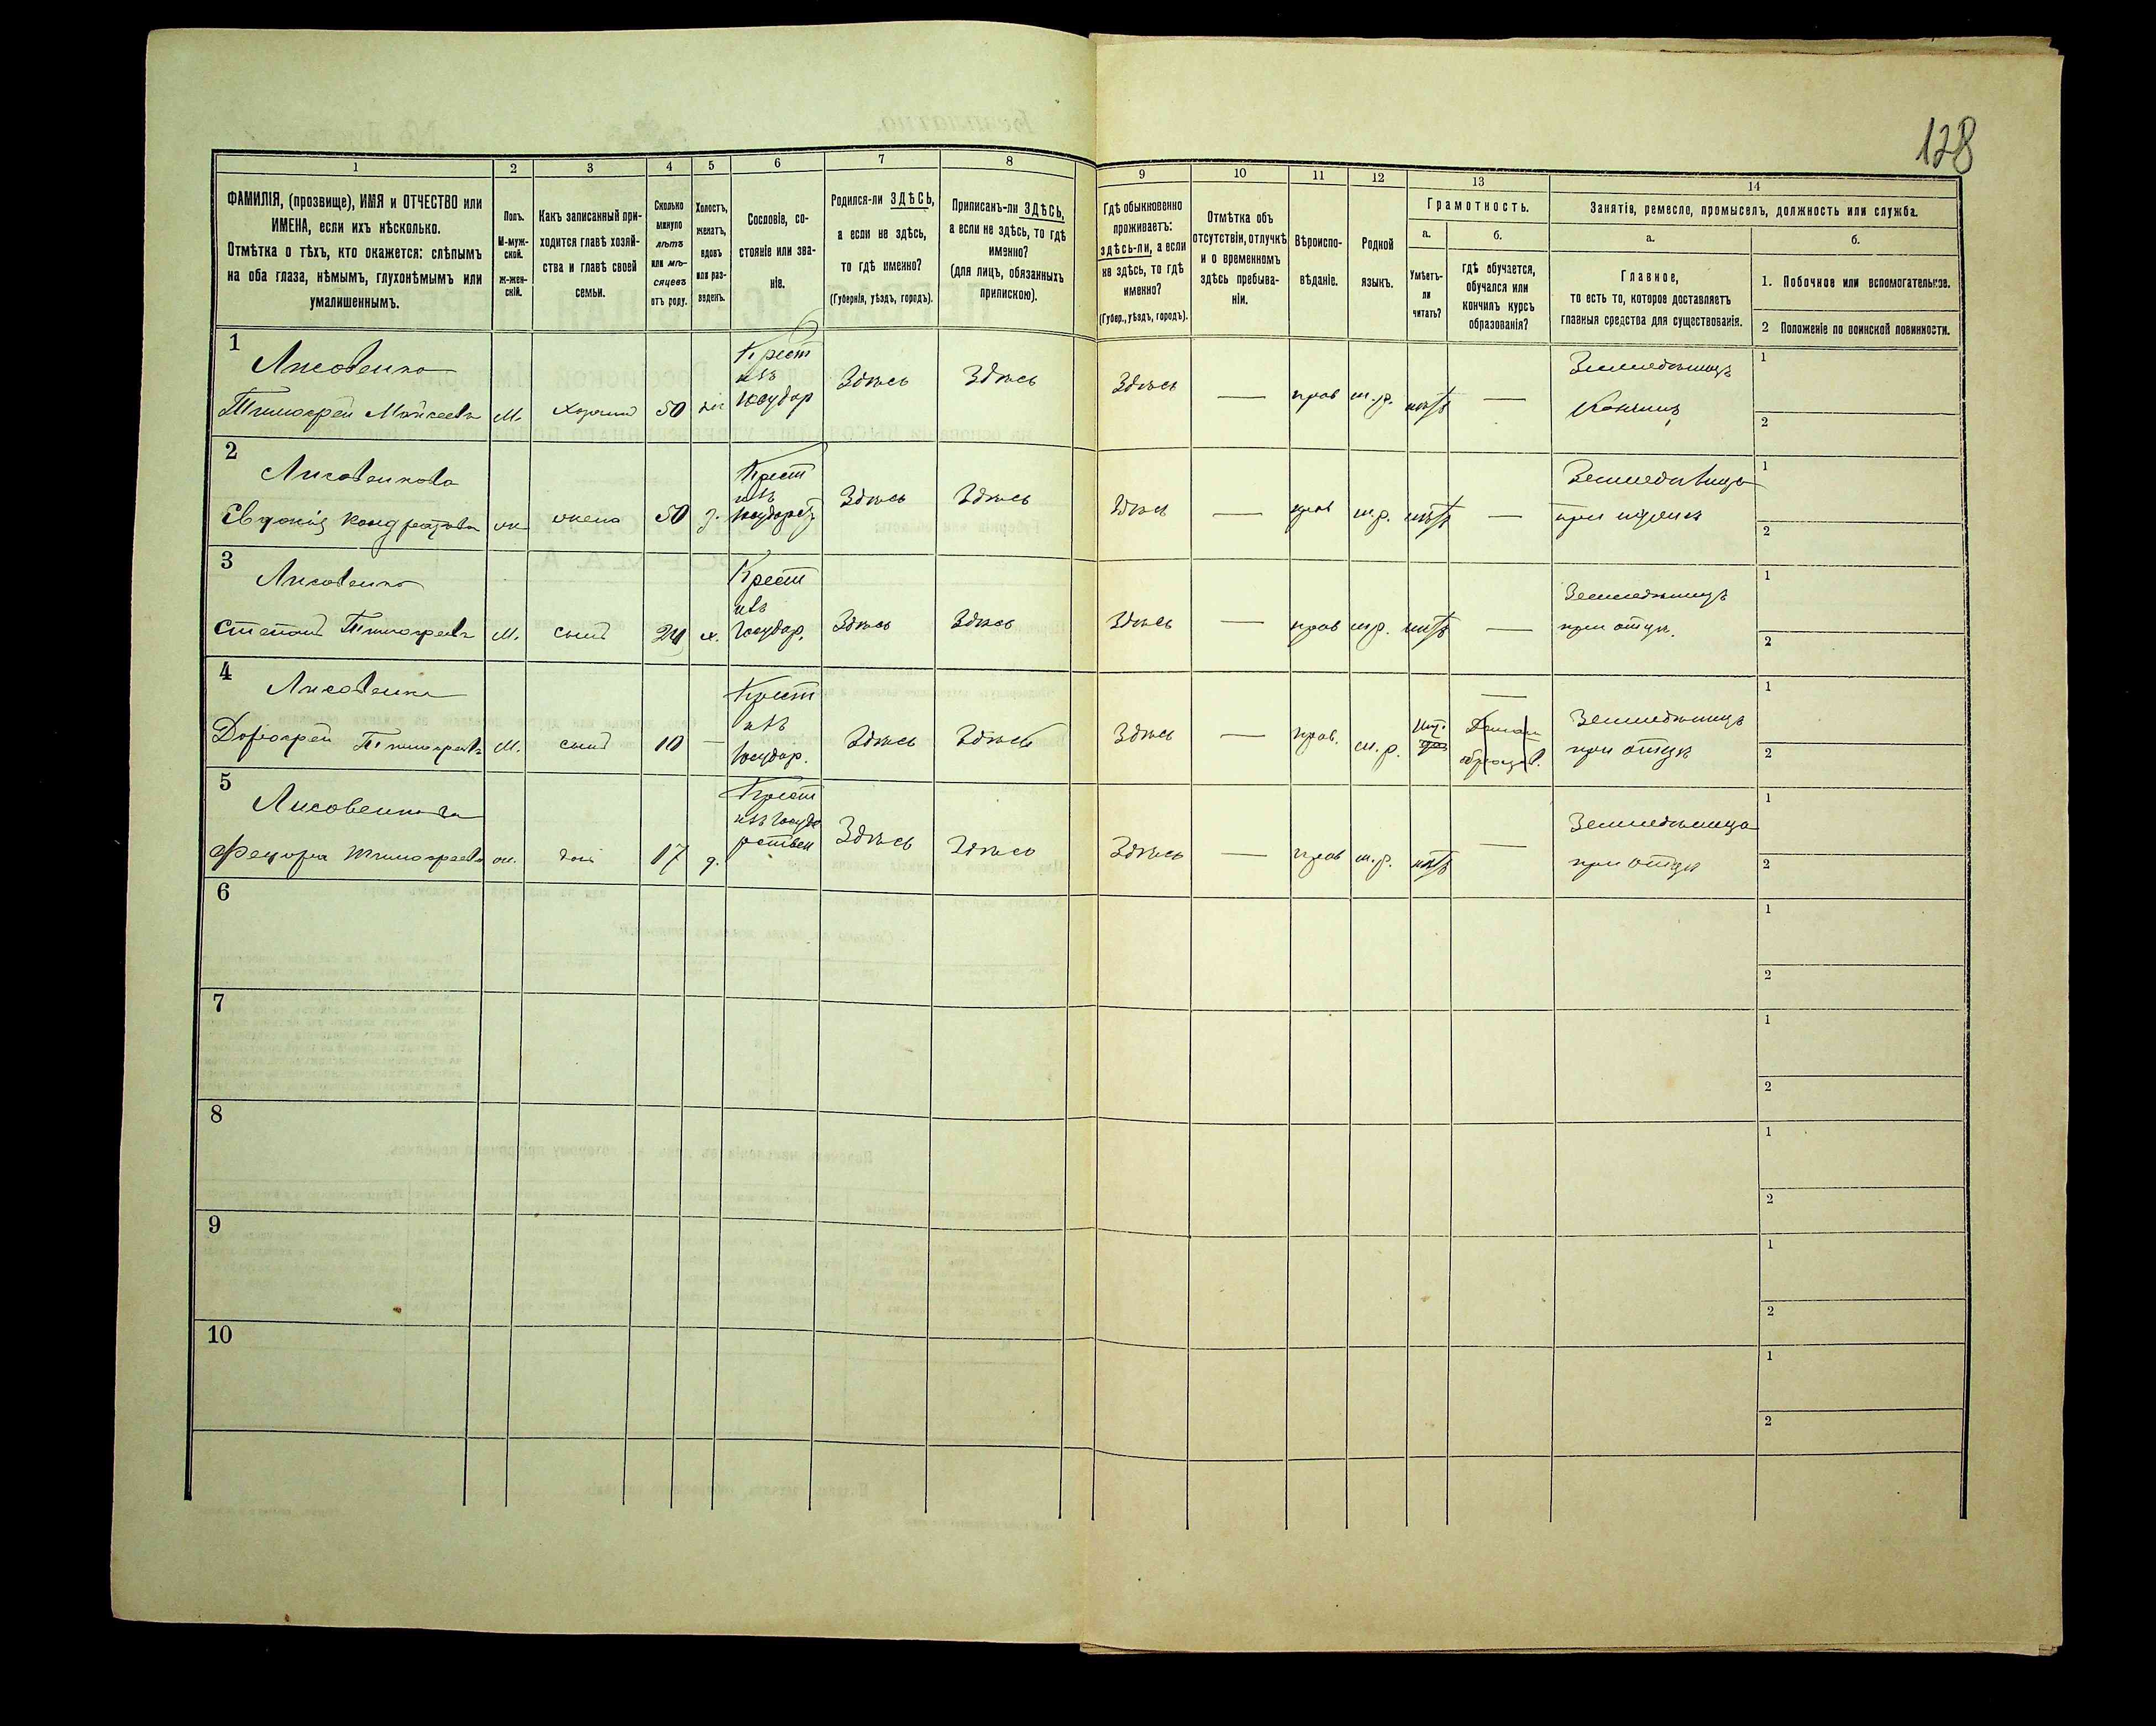 128
1 2 3 4 5 6 7 8 9 10 11 12 13 14
ФАМИЛІЯ, (прозвище), ИМЯ и ОТЧЕСТВО или
ИМЕНА, если ихъ нѣсколько.
Отмѣтка о тѣхъ, кто окажется: слѣпымъ
на оба глаза, нѣмымъ, глухонѣмымъ или
умалишеннымъ.
Полъ.
М-муж-
ской.
ж-жен-
скій.
Какъ записанный при-
ходится главѣ хозяй-
ства и главѣ своей
семьи.
Сколько
минуло
лѣтъ
или мѣ-
сяцевъ
отъ роду.
Холостъ,
женатъ,
вдовъ
или раз-
веденъ.
Сословіе, со-
стояніе или зва-
ніе.
Родился-ли ЗДѢСЬ,
а если не здѣсь,
то гдѣ именно?
(Губернія, уѣздъ, городъ).
Приписанъ-ли ЗДѢСЬ,
а если не здѣсь, то гдѣ
именно?
(для лицъ, обязанныхъ
припискою).
Гдѣ обыкновенно
проживаетъ:
здѣсь-ли, а если
не здѣсь, то гдѣ
именно?
(Губер., уѣздъ, городъ).
Отмѣтка объ
отсутствіи, отлучкѣ
и о временномъ
здѣсь пребыва-
ніи.
Вѣроиспо-
вѣданіе.
Родной
языкъ.
Грамотность.
а.
Умѣетъ-
ли
читать?
б.
гдѣ обучается,
обучался или
кончилъ курсъ
образованія?
Занятія, ремесло, промыселъ, должность или служба.
а.
Главное,
то есть то, которое доставляетъ
главныя средства для существованія.
б.
1. Побочное или вспомогательное.
2 Положеніе по воинской повинности.
1
Лисовенко
Тимофей Мойсеевъ М. Хозяинъ 50
Крест
изъ
государ
Здѣсь Здѣсь Здѣсь — прав м.р. нѣтъ —
Земледѣлецъ
1
2
2
Лисовенкова
Евдокія Кондратова ж жена 50 з.
Крест
изъ
государст
Здѣсь Здѣсь Здѣсь — прав м.р. нѣтъ —
при мужѣ
1
2
3
Лисовенко
Степанъ Тимофеевъ М. сынъ 24 х.
Крест
изъ
государ.
Здѣсь Здѣсь Здѣсь — прав м.р. нѣтъ —
Земледѣлецъ
при отцѣ.
1
2
4
Лисовенко
Дорофей Тимофеевъ М. сынъ 10 —
Крест
изъ
государ.
Здѣсь Здѣсь Здѣсь — прав. м.р. —
Земледѣлецъ
при отцѣ
1
2
5
Лисовенкова
Федора Тимофеева ж. дочь 17 д.
Крест
изъ госуда
рствен
Здѣсь Здѣсь Здѣсь — прав м.р. нѣтъ —
Земледѣлица
при отцѣ
1
2
6
1
2
7
1
2
8
1
2
9
1
2
10
1
2